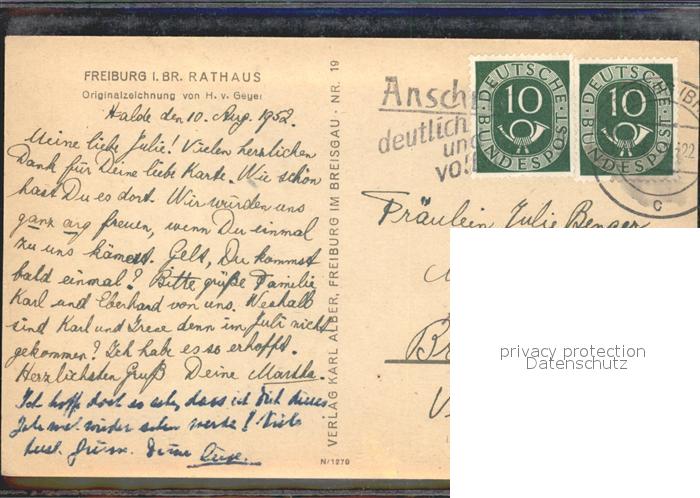 FREIBURG I. BR. RATHAUS
Originalzeichnung von H. v. Geyer
Halde den 10. Aug. 1952.
Meine liebe Julie! Vielen herzlichen
Dank für Deine liebe Karte. Wie schön
hast Du es dort. Wir würden uns
ganz arg freuen, wenn Du einmal
zu uns kämest. Gelt, Du kommst
bald einmal? Bitte grüße Familie
Karl und Eberhard von uns. Weshalb
sind Karl und Irene denn im Juli nicht
gekommen? Ich habe es so erhofft.
Herzlichsten Gruß Deine Martha.
Ich hoffe doch so sehr, dass ich Dich dieses
Jahr mal wieder sehen werde! Viele
Deine
N/1279
VERLAG KARL ALBER, FREIBURG IM BREISGAU. NR. 19
Ansch
deutlich
und
vol
DEUTSCHE BUNDESPOST
10
DEUTSCHE BUNDESPOST
10
22
c
Fräulein Julie Benger
Br
V
privacy protection
Datenschutz